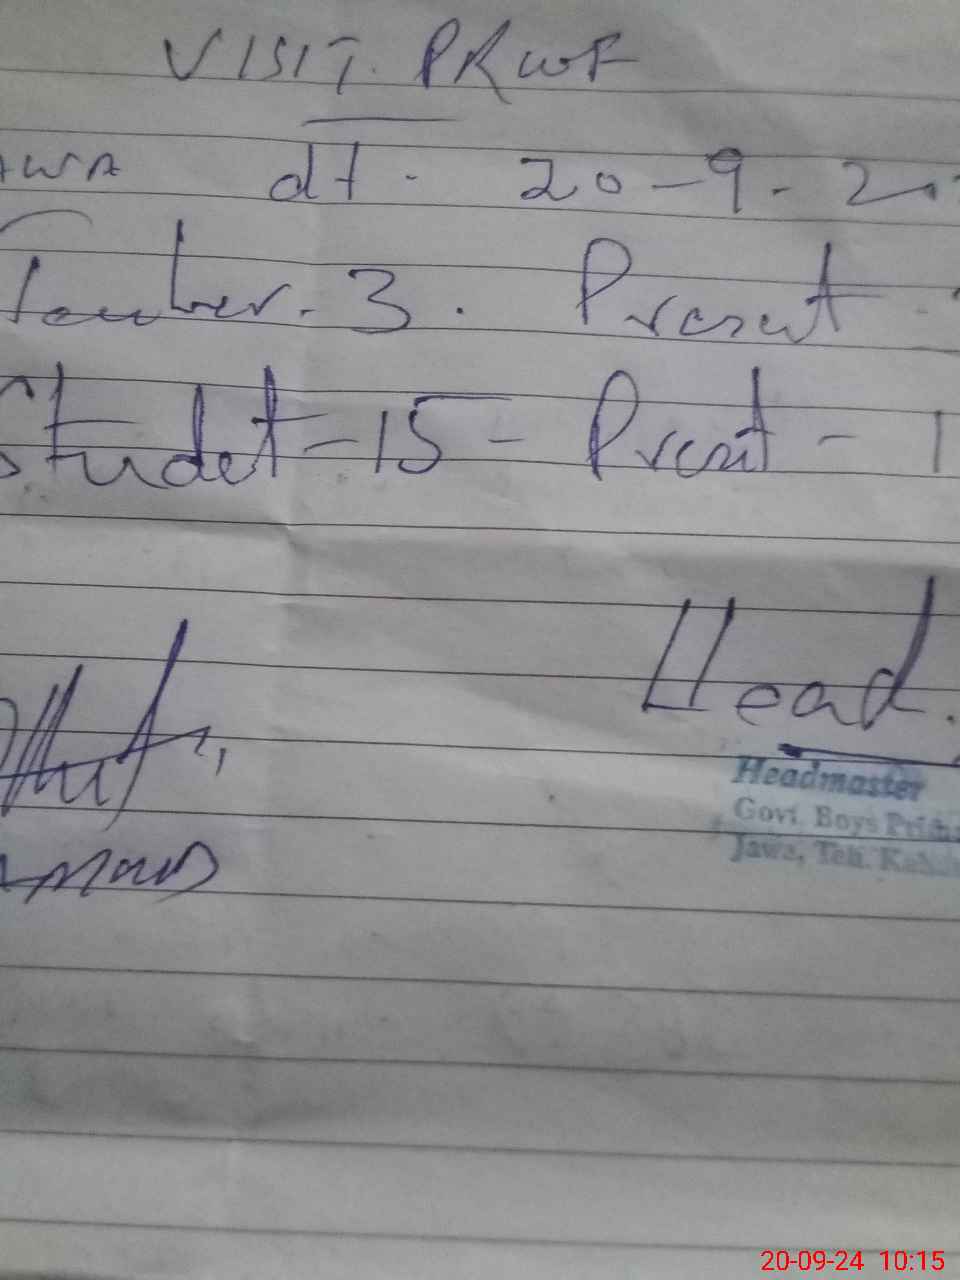 VISIT. PRWF
AWA dt. 20-9-2
Teacher. 3. Present
Studet = 15 = Presit - 1
Head.
Headmaster
Govt. Boys
Jawa, Teh.
20-09-24 10:15